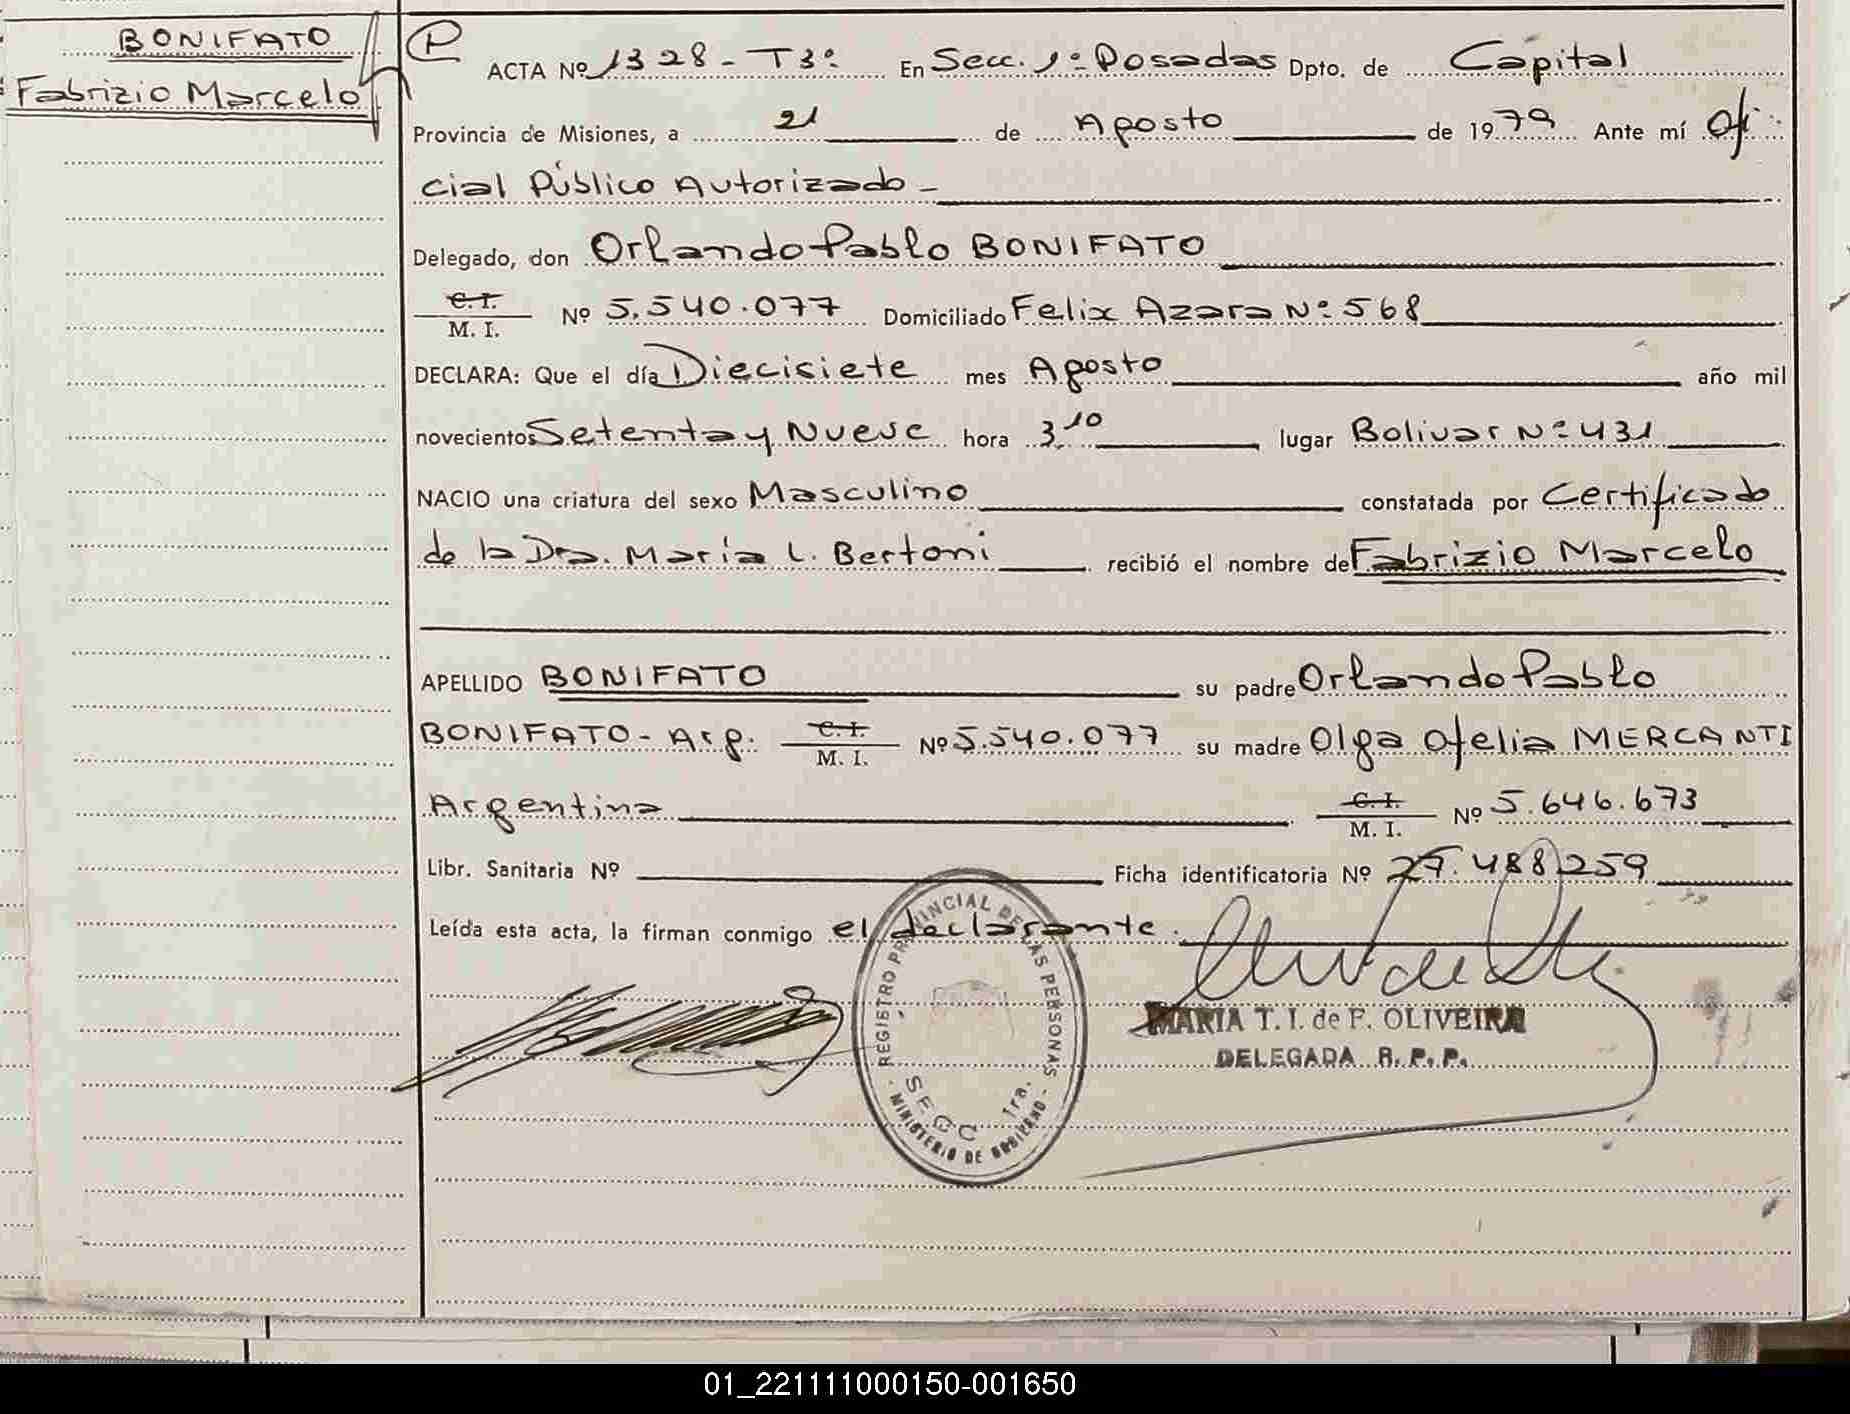 BONIFATO
Fabrizio Marcelo
ACTA Nº 1328 - T3º En Secc. 1º Posadas Dpto. de Capital
Provincia de Misiones, a 21 de Agosto de 1979 Ante mí Ofi
cial Público Autorizado -
Delegado, don Orlando Pablo BONIFATO
C.I. M. I. Nº 5.540.077 Domiciliado Felix Azara Nº 568
DECLARA: Que el día Diecisiete mes Agosto año mil
novecientos Setenta y Nueve hora 3,10 lugar Bolivar Nº 431
NACIO una criatura del sexo Masculino constatada por Certificado
de la Dra. María L. Bertoni recibió el nombre de Fabrizio Marcelo
APELLIDO BONIFATO su padre Orlando Pablo
BONIFATO - Arg. C.I. M. I. Nº 5.540.077 su madre Olga Ofelia MERCANTI
Argentina C.I. M. I. Nº 5.646.673
Libr. Sanitaria Nº Ficha identificatoria Nº 27.488.259
Leída esta acta, la firman conmigo el declarante.
REGISTRO PROVINCIAL DE LAS PERSONAS
SECC 1ra.
- MINISTERIO DE GOBIERNO -
MARIA T. I. de F. OLIVEIRA
DELEGADA R. P. P.
01_221111000150-001650